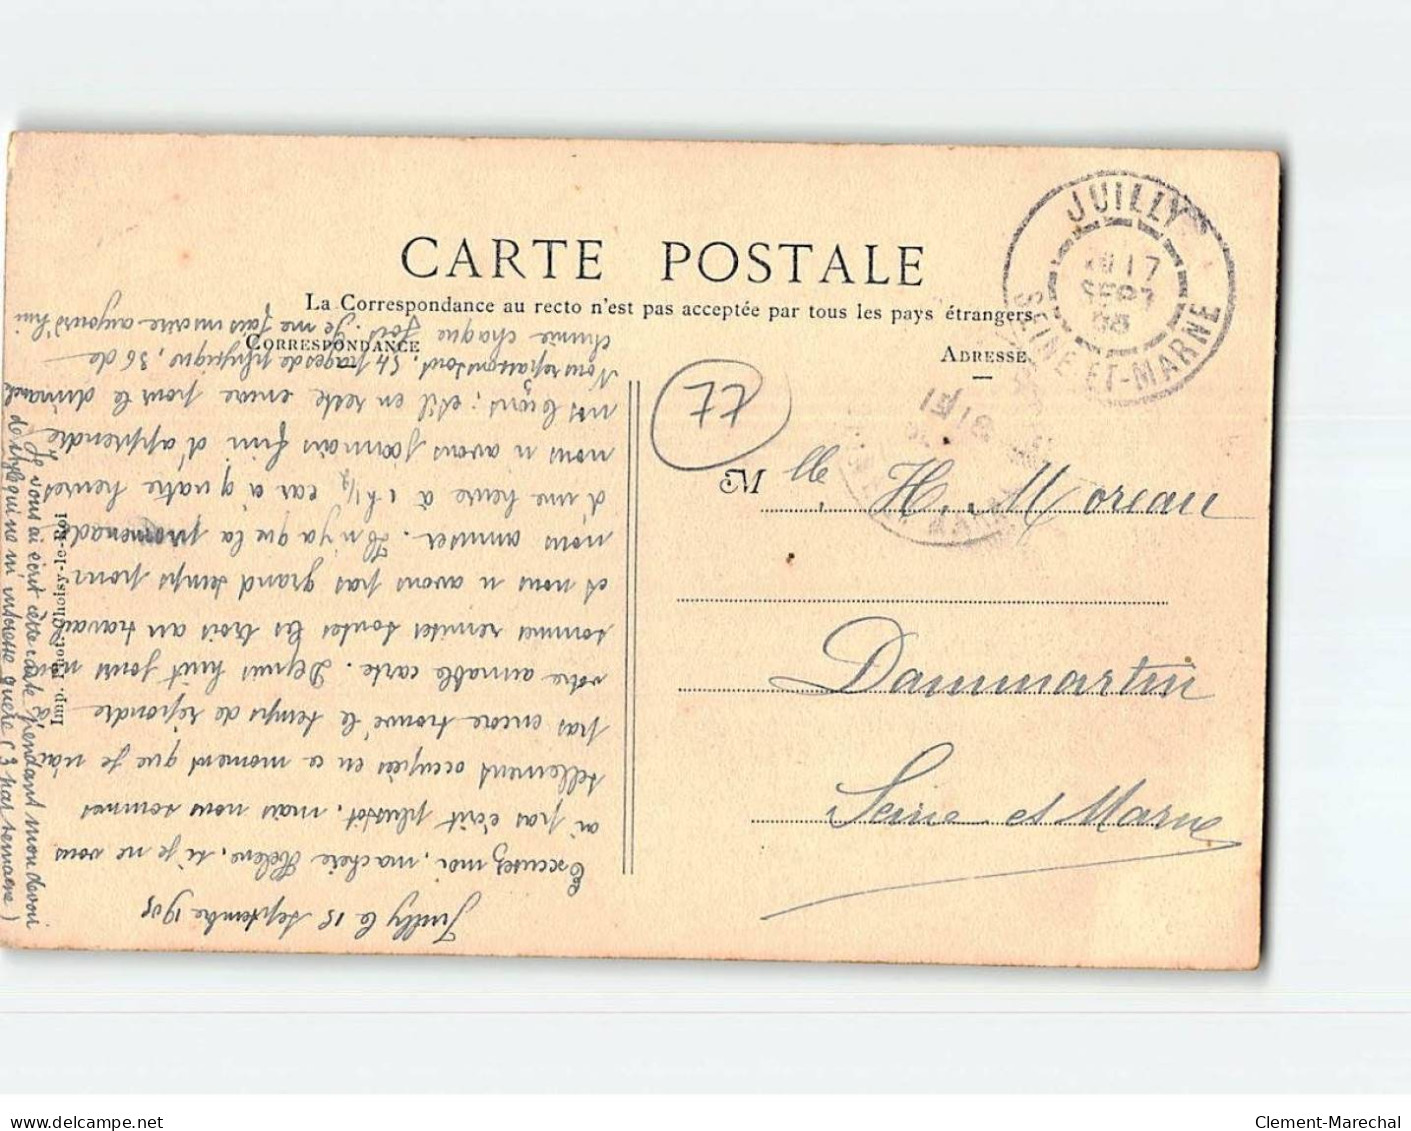 CARTE POSTALE
La Correspondance au recto n'est pas acceptée par tous les pays étrangers
CORRESPONDANCE
ADRESSE
JUILLY
17
SEPT
SEINE-ET-MARNE
77
Mlle H. Moreau
Dammartin
Seine et Marne
Imp. Choisy-le-Roi
Juilly le 15 septembre 1905
Excusez moi, ma chère Hélène, si je ne vous
ai pas écrit plustôt, mais nous sommes
tellement occupées en ce moment que je n'ai
pas encore trouvé le temps de répondre à
votre aimable carte. Depuis huit jours nous
sommes remises toutes les trois au travail
et nous n'avons pas grand temps pour
nous amuser. Il n'y a que la promenade
d'une heure à 1 h 1/2 car à quatre heures
nous n'avons jamais fini d'apprendre
nos leçons; est il en reste encore pour le dimanche
Nous repassons tout, 54 pages de physique, 36 de
chimie chaque fois. Je me fais mettre aujourd'hui
Je vous ai écrit cette carte pendant mon devoir
de style qui ne m'intéresse guère (3 par semaine)
Clement-Marechal
delcampe.net